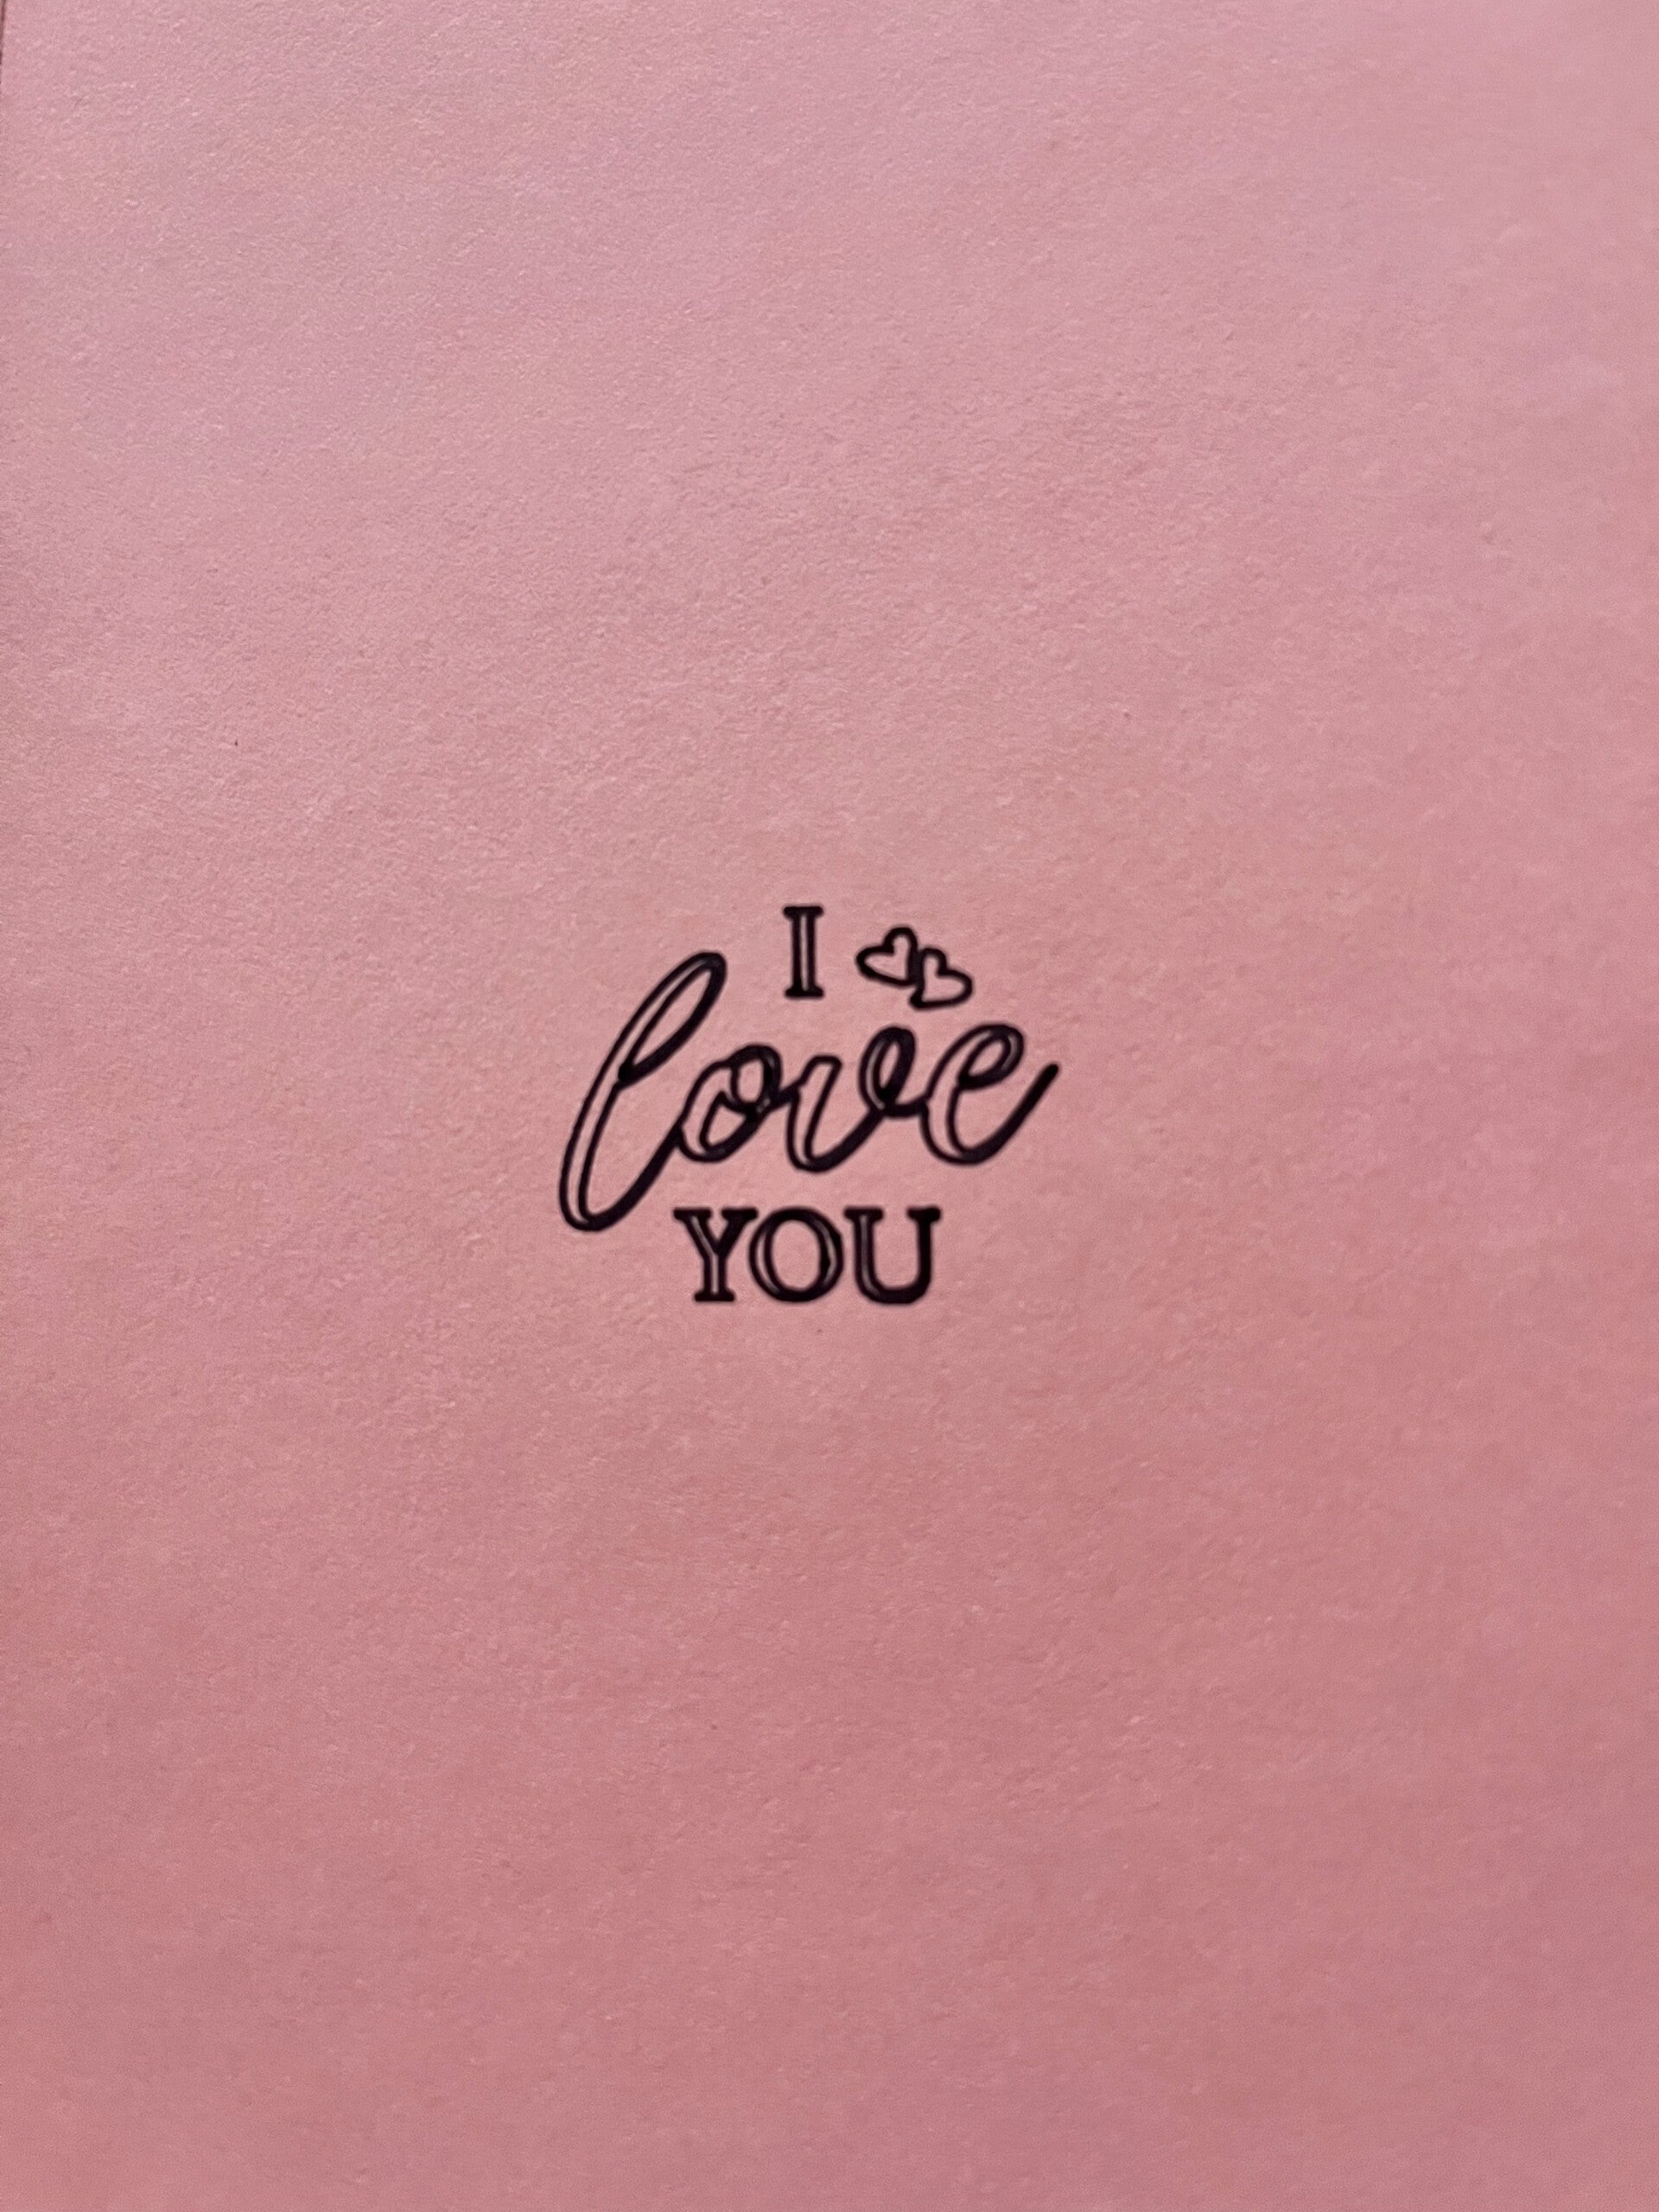 I
love
YOU